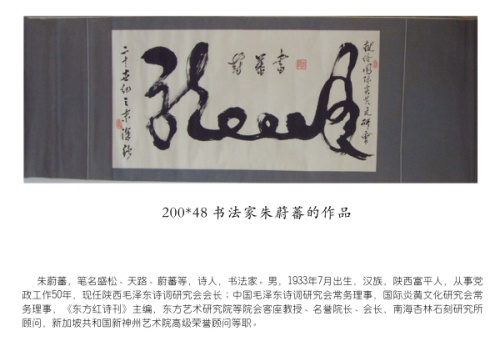 200*48 书法家朱蔚蕃的作品
朱蔚蕃，笔名盛松、天路、蔚蕃等，诗人，书法家。男，1933年7月出生，汉族，陕西富平人，从事党
政工作50年，现任陕西毛泽东诗词研究会会长；中国毛泽东诗词研究会常务理事，国际炎黄文化研究会常
务理事，《东方红诗刊》主编，东方艺术研究院等院会客座教授、名誉院长、会长，南海杏林石刻研究所
顾问，新加坡共和国新神州艺术院高级荣誉顾问等职。